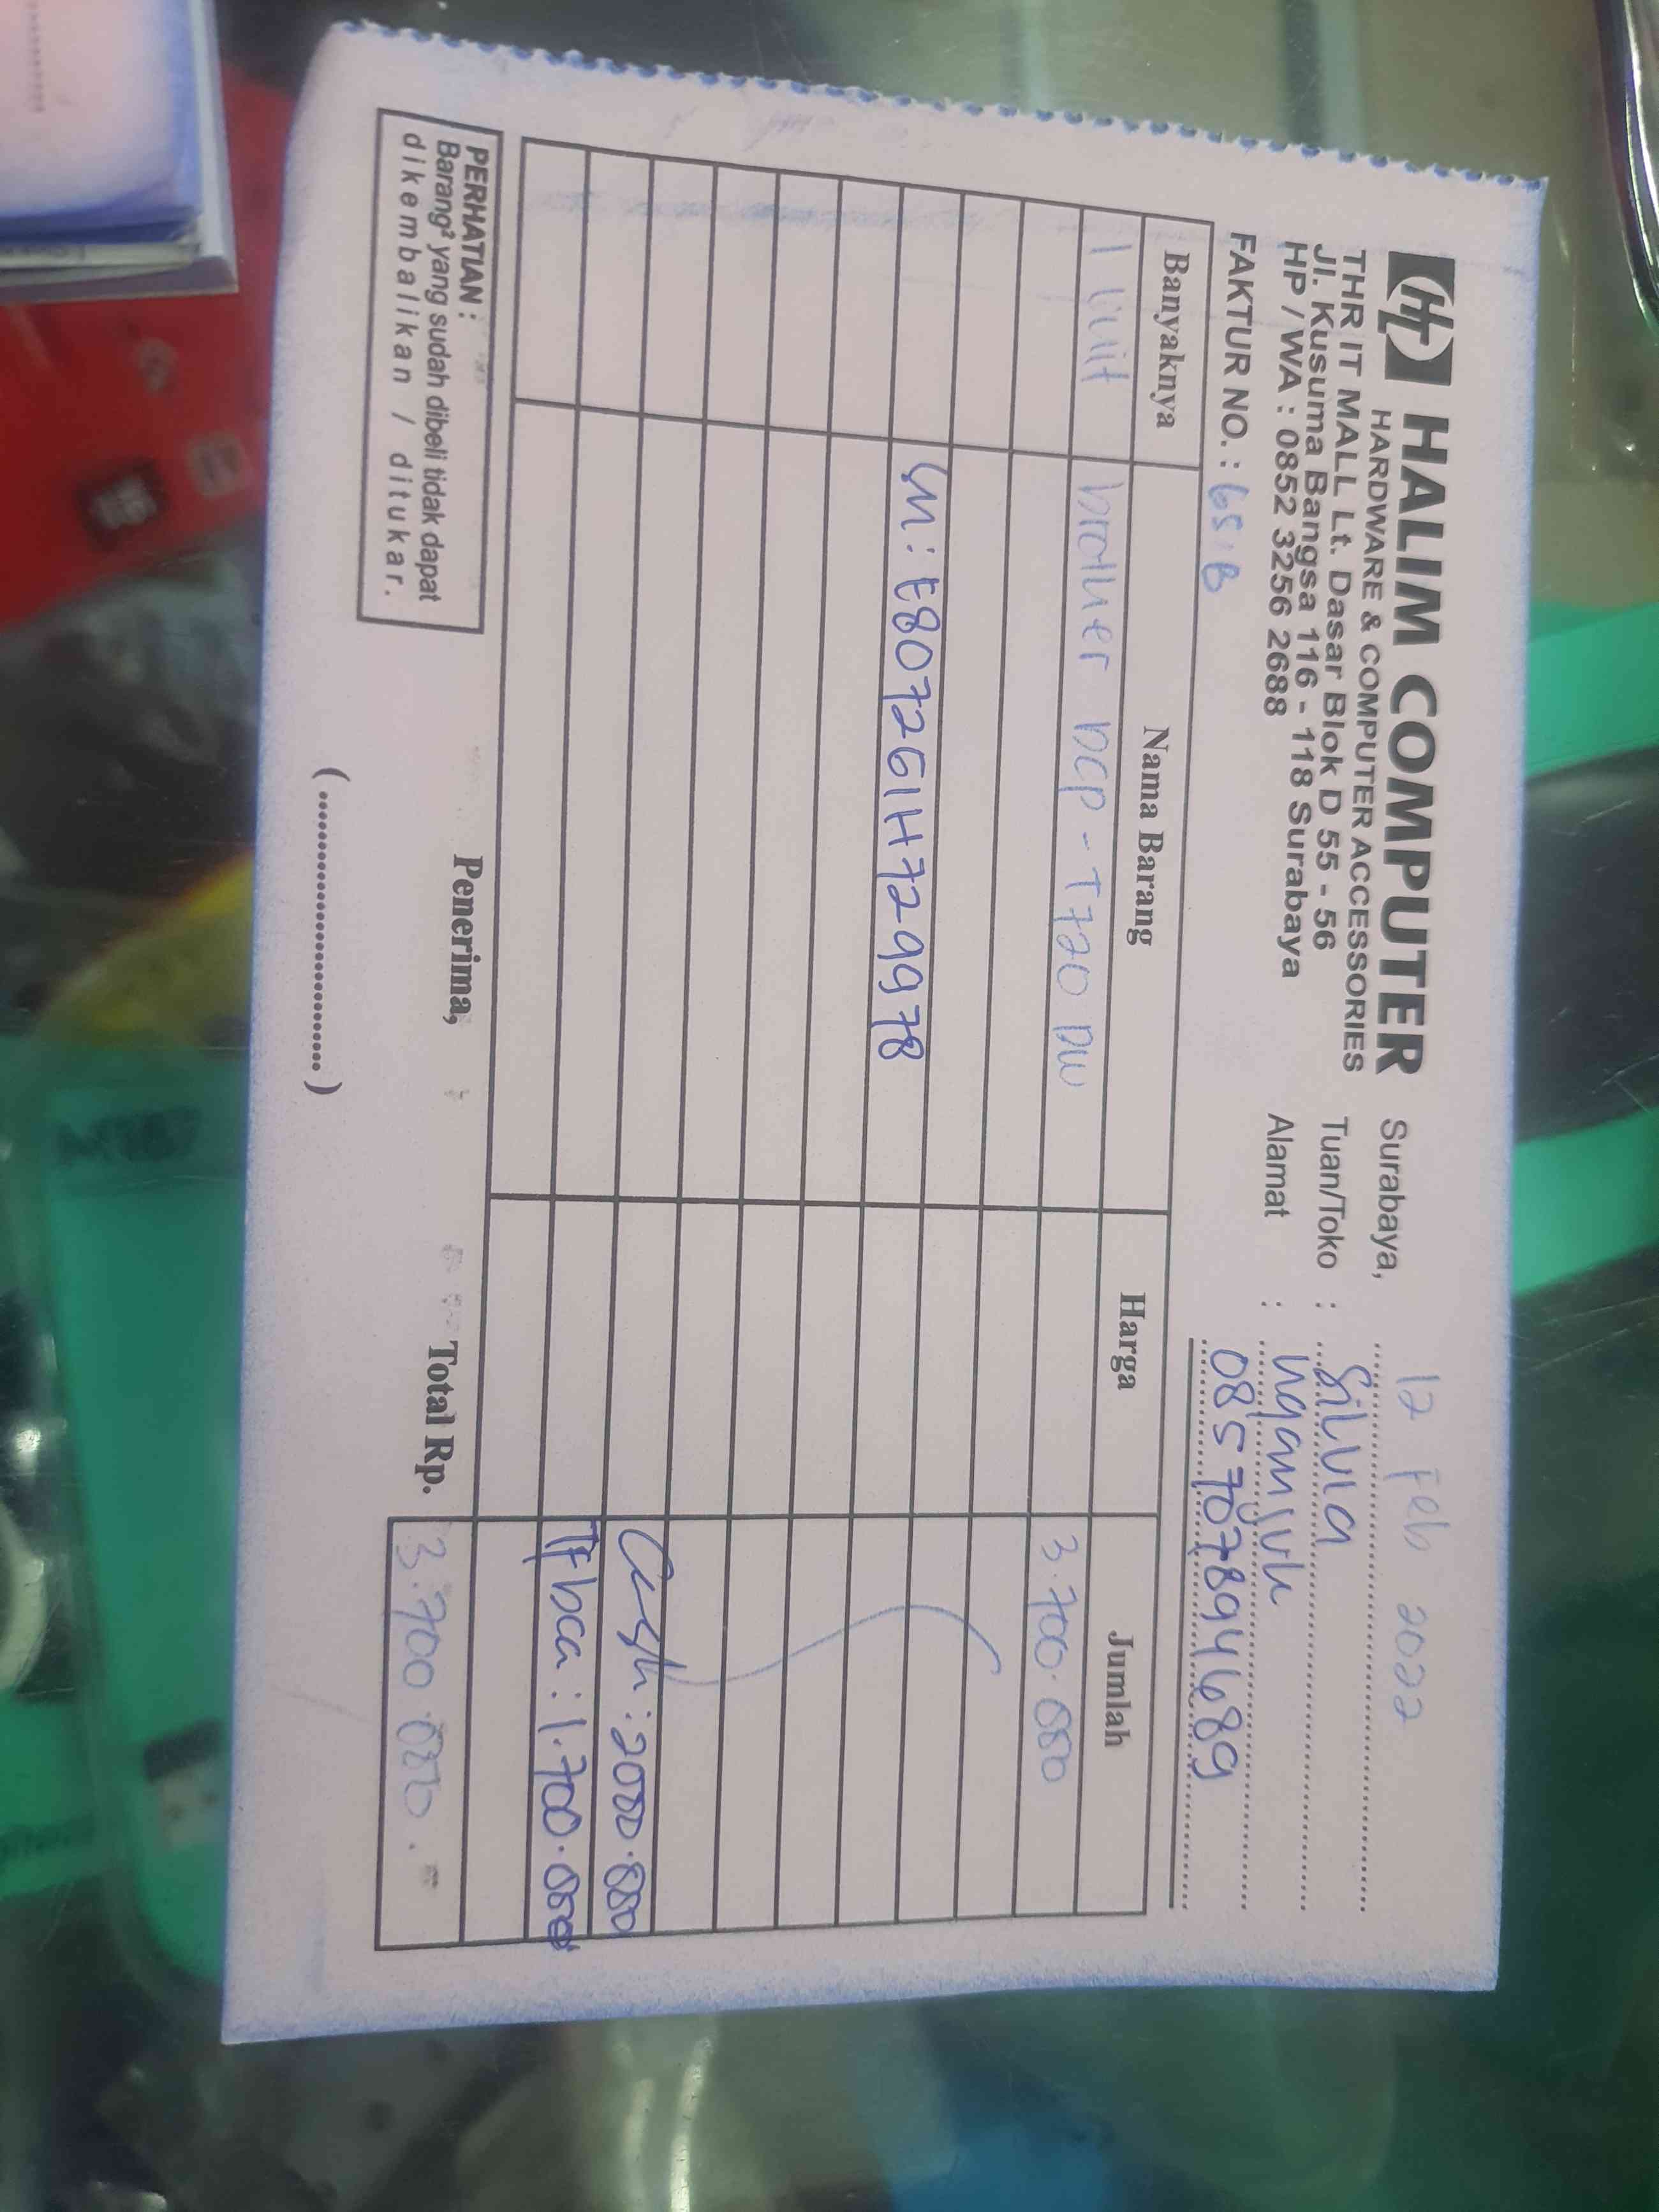 HALIM COMPUTER
HARDWARE & COMPUTER ACCESSORIES
THR IT MALL Lt. Dasar Blok D 55 - 56
Jl. Kusuma Bangsa 116 - 118 Surabaya
HP / WA : 0852 3256 2688
FAKTUR NO. :
Surabaya, 12 Feb 2022
Tuan/Toko : Silvia
Alamat : nganjuk
085707894689
Banyaknya Nama Barang Harga Jumlah
1 unit brother DCP - T720 DW 3.700.000
SN : E80726IH729978
Cash : 2000.000
TF bca : 1.700.000
Total Rp. 3.700.000.=
PERHATIAN :
Barang² yang sudah dibeli tidak dapat
dikembalikan / ditukar.
Penerima,
(..............................)